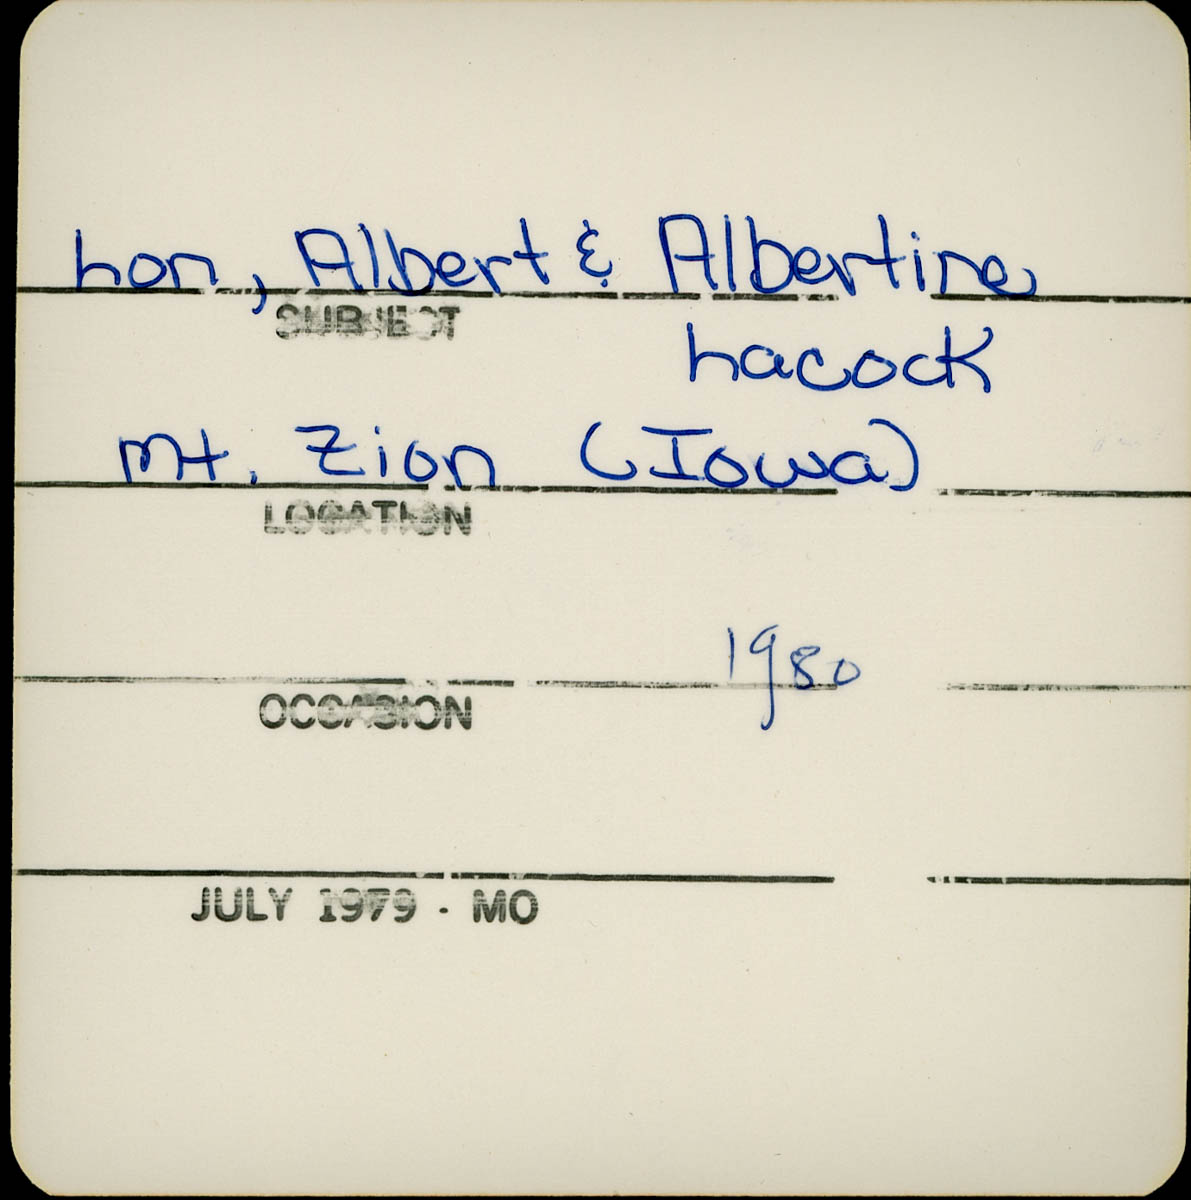 Lon, Albert & Albertine
SUBJECT
Lacock
Mt. Zion (Iowa)
LOCATION
1980
OCCASION
JULY 1979 - MO